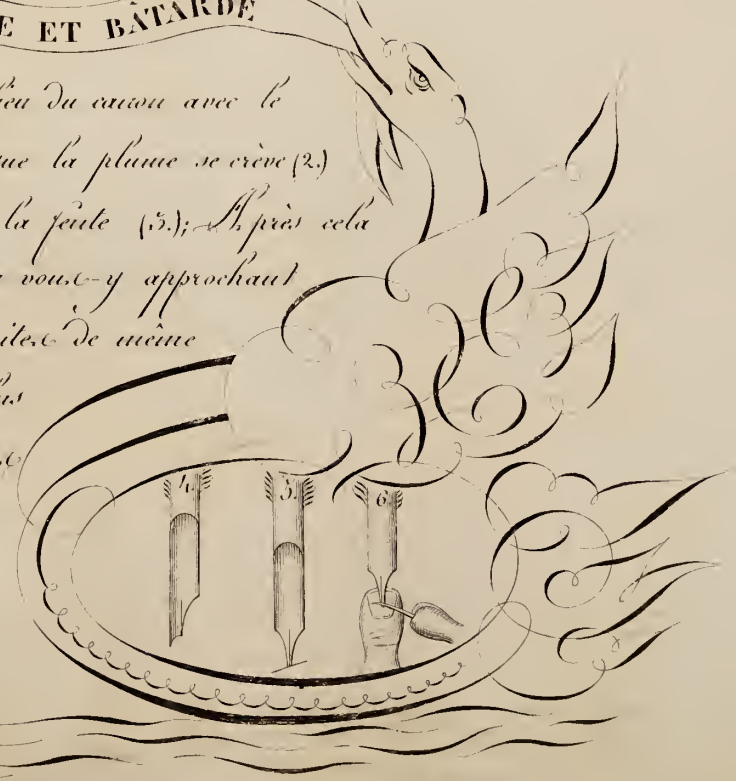 E ET BÂTARDE
lieu du canon avec le
que la plume se crève (2.)
la fente (3.); Après cela
vous-y approchant
ites de même
4. 5. 6.